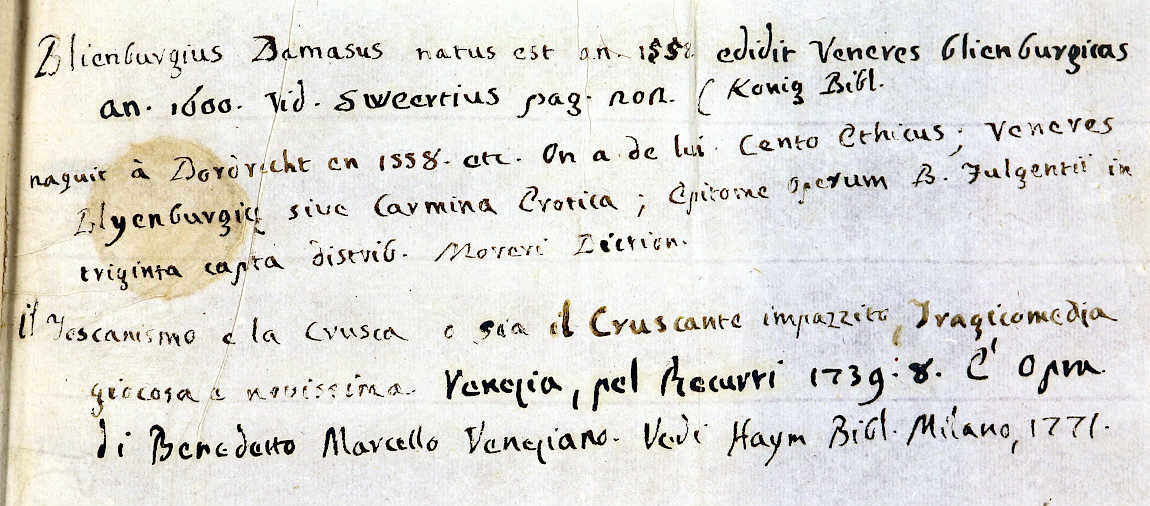 Blienburgius Damasus natus est an. 1558 edidit Veneres blienburgicas
an. 1600. Vid. Sweertius pag. non. ( Konig Bibl.
naquit à Dordrecht en 1558. etc. On a de lui. Cento Ethicus; Veneres
Blyenburgicę sive Carmina Erotica; Epitome operum B. Fulgentii in
triginta capta distrib. Moreri Diction.
il Toscanismo e la Crusca o sia il Cruscante impazzito, Tragicomedia
giocosa e novissima. Venezia, pel Recurti 1739. 8. E' Opra
di Benedetto Marcello Veneziano. Vedi Haym Bibl. Milano, 1771.